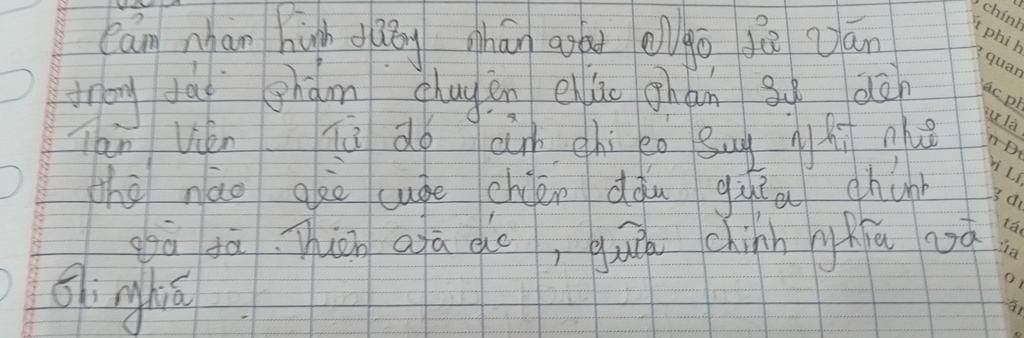 Cảm nhận hình tượng nhân vật Ngô Tử Văn
trong tác phẩm chuyện chức phán sự đền
Tản Viên Từ đó anh chị có suy nghĩ như
thế nào về cuộc chiến đấu giữa chính
và tà. Thiện và ác, giữa chính nghĩa và
phi nghĩa
chính
phi h
quan
ác ph